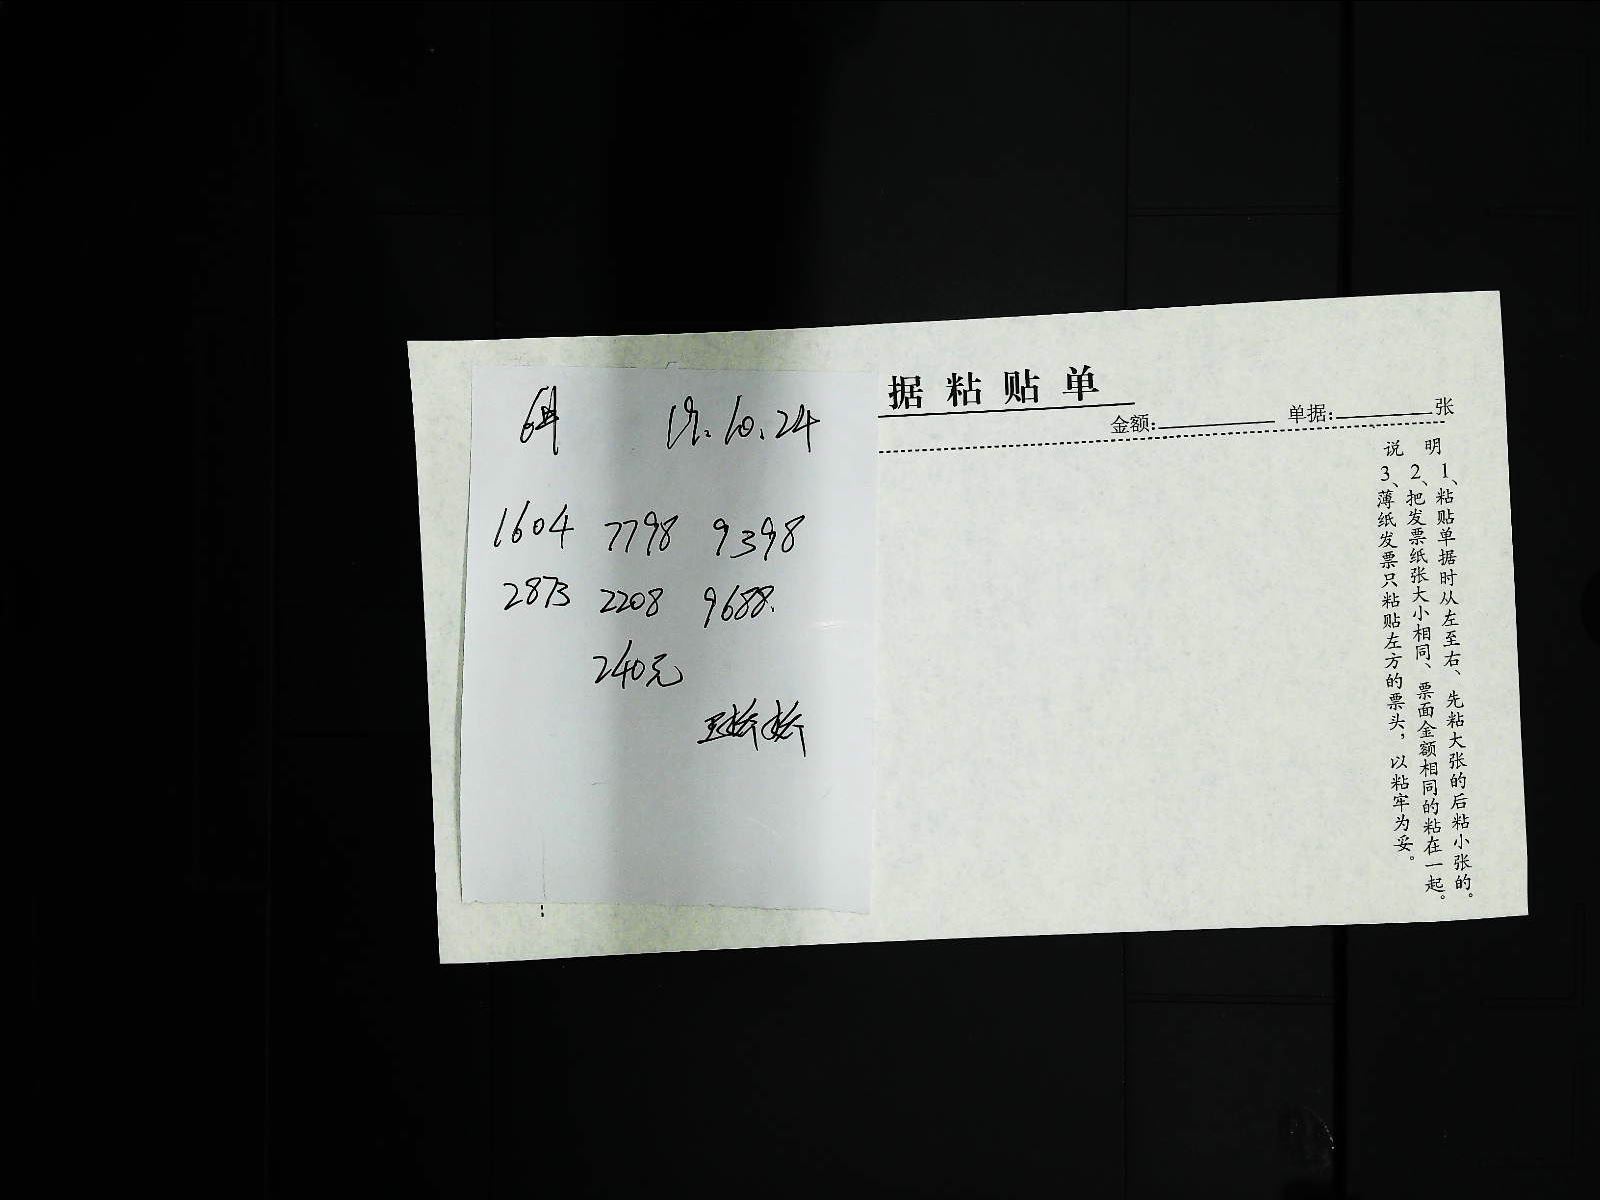 据粘贴单
金额: 单据: 张
说明
1、粘贴单据时从左至右、先粘大张的后粘小张的。
2、把发票纸张大小相同、票面金额相同的粘在一起。
3、薄纸发票只粘贴左方的票头，以粘牢为妥。
19.10.24
1604 7798 9398
2873 2208 9688.
240元